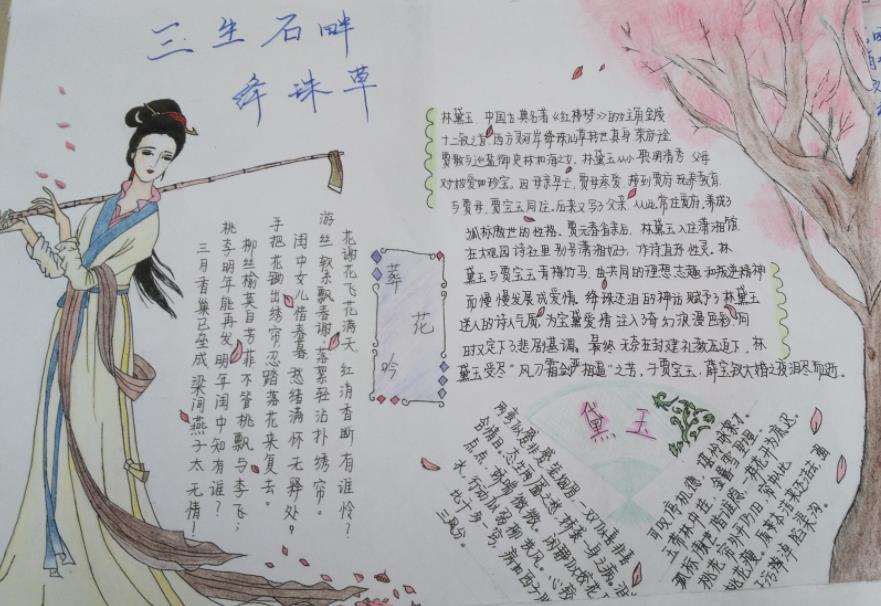 三生石畔
绛珠草
林黛玉，中国古典名著《红楼梦》的主角金陵
十二钗之首，西方灵河岸绛珠仙草转世真身，荣府千金
贾敏与巡盐御史林如海之女，林黛玉从小聪明清秀，父母
对她爱如珍宝。因母亲早亡，贾母疼爱，接到贾府抚养教育，
与贾母、贾宝玉同住。后来又写了父亲，从此常住贾府，养成了
孤标傲世的性格。贾元春省亲后，林黛玉入住潇湘馆
在大观园诗社里别号潇湘妃子，作诗直抒性灵。林
黛玉与贾宝玉青梅竹马，由共同的理想志趣和叛逆精神
而慢慢发展成爱情。绛珠还泪的神话赋予了林黛玉
迷人的诗人气质，为宝黛爱情注入了奇幻浪漫色彩，同
时又定下了悲剧基调。最终无奈在封建礼教压迫下，林
黛玉受尽“风刀霜剑严相逼”之苦，于贾宝玉、薛宝钗大婚之夜泪尽而逝。
葬花吟
花谢花飞花满天，红消香断有谁怜？
游丝软系飘春谢，落絮轻沾扑绣帘。
闺中女儿惜春暮，愁绪满怀无释处。
手把花锄出绣帘，忍踏落花来复去。
柳丝榆荚自芳菲，不管桃飘与李飞；
桃李明年能再发，明年闺中知有谁？
三月香巢已垒成，梁间燕子太无情！
黛玉
两弯似蹙非蹙罥烟眉，一双似喜非喜
含情目。态生两靥之愁，娇袭一身之病。泪
点点，娇喘微微。闲静似娇花
水，行动似弱柳扶风。心较
比干多一窍，病如西子胜
三分。
可叹停机德，堪怜咏絮才。
玉带林中挂，金簪雪里埋。
孤标傲世偕谁隐，一样花开为底迟。